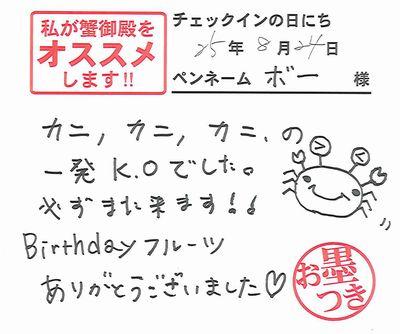 私が蟹御殿を
オススメ
します!!
チェックインの日にち
25年8月24日
ペンネーム ボー 様
カニ, カニ, カニ、の
一発K.Oでした。
必ずまた来ます!!
Birthdayフルーツ
ありがとうございました♡
お墨つき